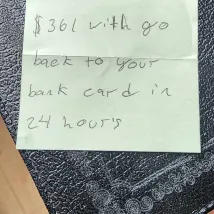 $361 with go
back to your
bank card in
24 hours